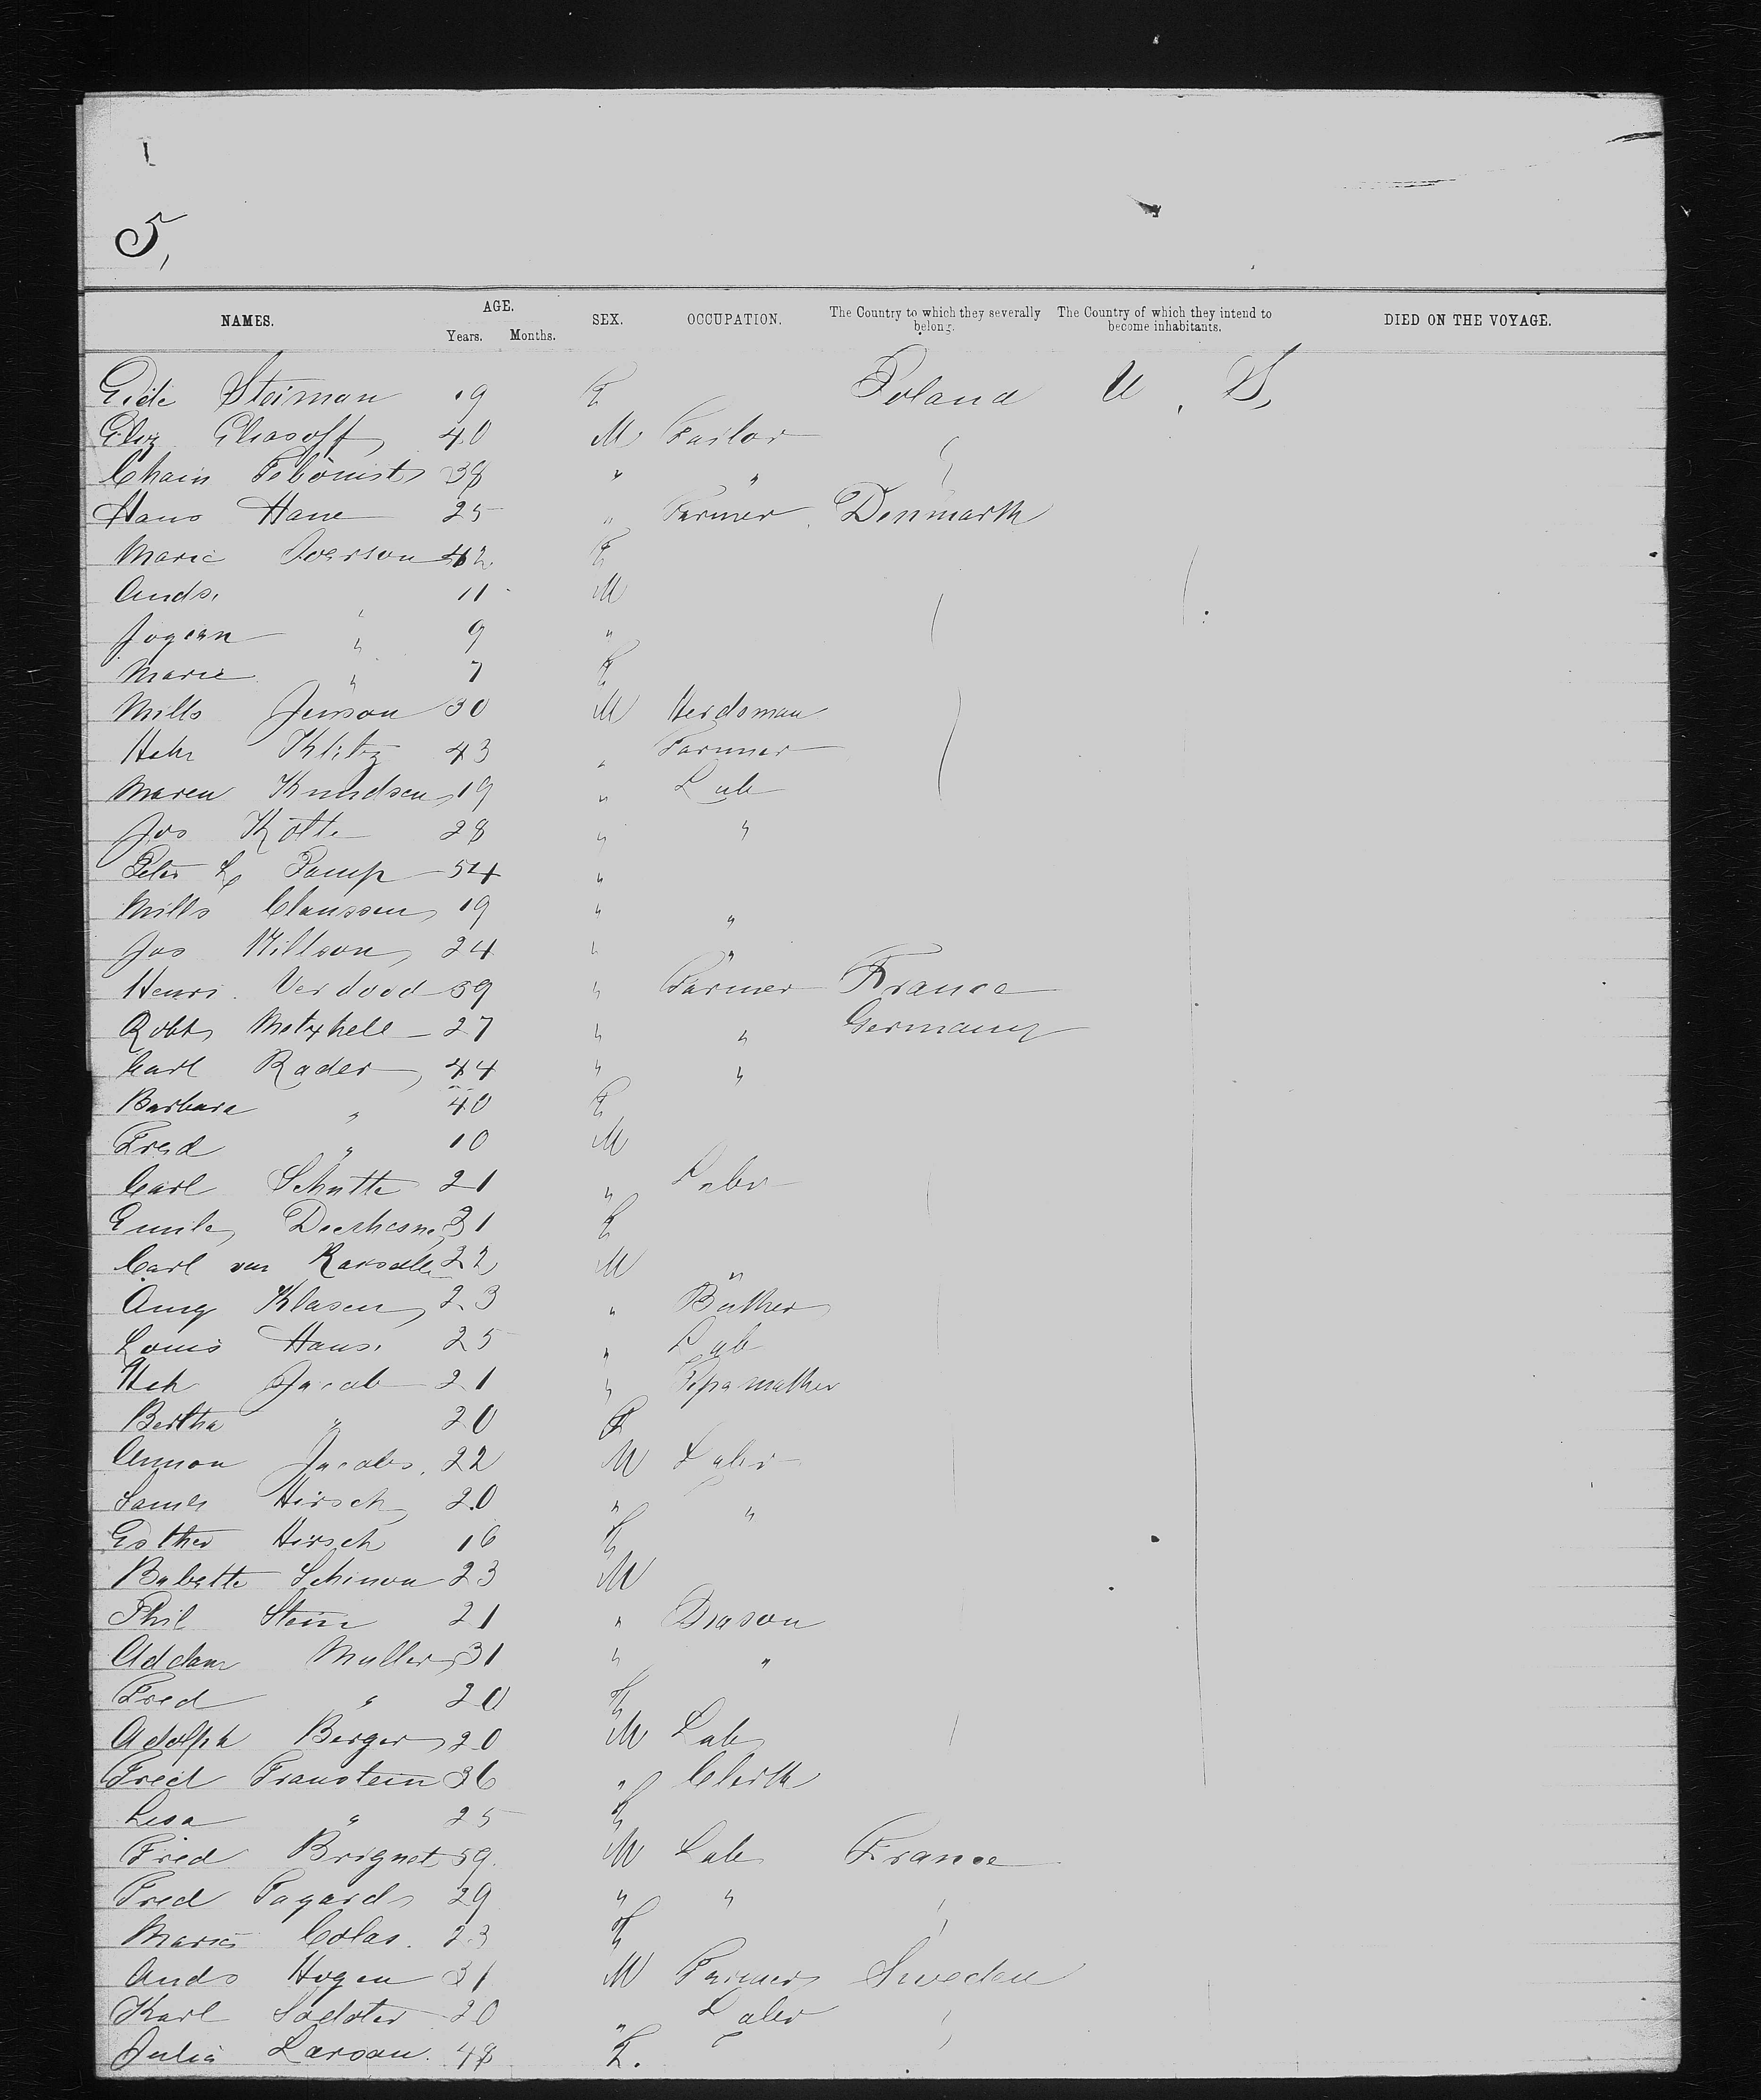 5,
NAMES. AGE. Years. Months. SEX. OCCUPATION. The Country to which they severally belong. The Country of which they intend to become inhabitants. DIED ON THE VOYAGE.
Steirman 19 F Poland U. S,
Eliasoff 40 M Tailor
Chain 38 " "
Hans Hane 25 " Farmer Denmark
Marie Iverson 42 F
Ands. 11 M
" 9 "
Marie " 7 F
Mills Jenson 30 M Herdsman
43 " Farmer
Maren Knudsen 19 " Lab
Jos Kolte 28 " "
Peter L Pamp 54 "
Mills Claussen 19 " "
Jos Nillson 24 " "
Henri Verdood 39 " Farmer France
Robt 27 " " Germany
Carl Rader 44 " "
Barbara " 40 F
Fred " 10 M
Carl Schutte 21 " Labr
Emile 31 F
Carl van 22 M "
Aug Klasen 23 "
Louis Hans. 25 " Lab
Hch Jacob 21 "
Bertha " 20 F
Jacobs. 22 M Labr
Hirsch 20 " "
Esther Hirsch 16 F
Babette Schimon 23 M
Phil Stein 21 "
Addam Muller 31 " "
Fred " 20 F
Adolph Berger 20 M Lab
Fred Franstein 36 " Clerk
Lisa " 25 F
Fred Brignot 59 M Lab France
Fred Pagard 29 " "
Colas. 23 F
Ands Hogen 31 M Farmer Sweden
Karl 20 " Labr
Julia Larsan. 48 F.